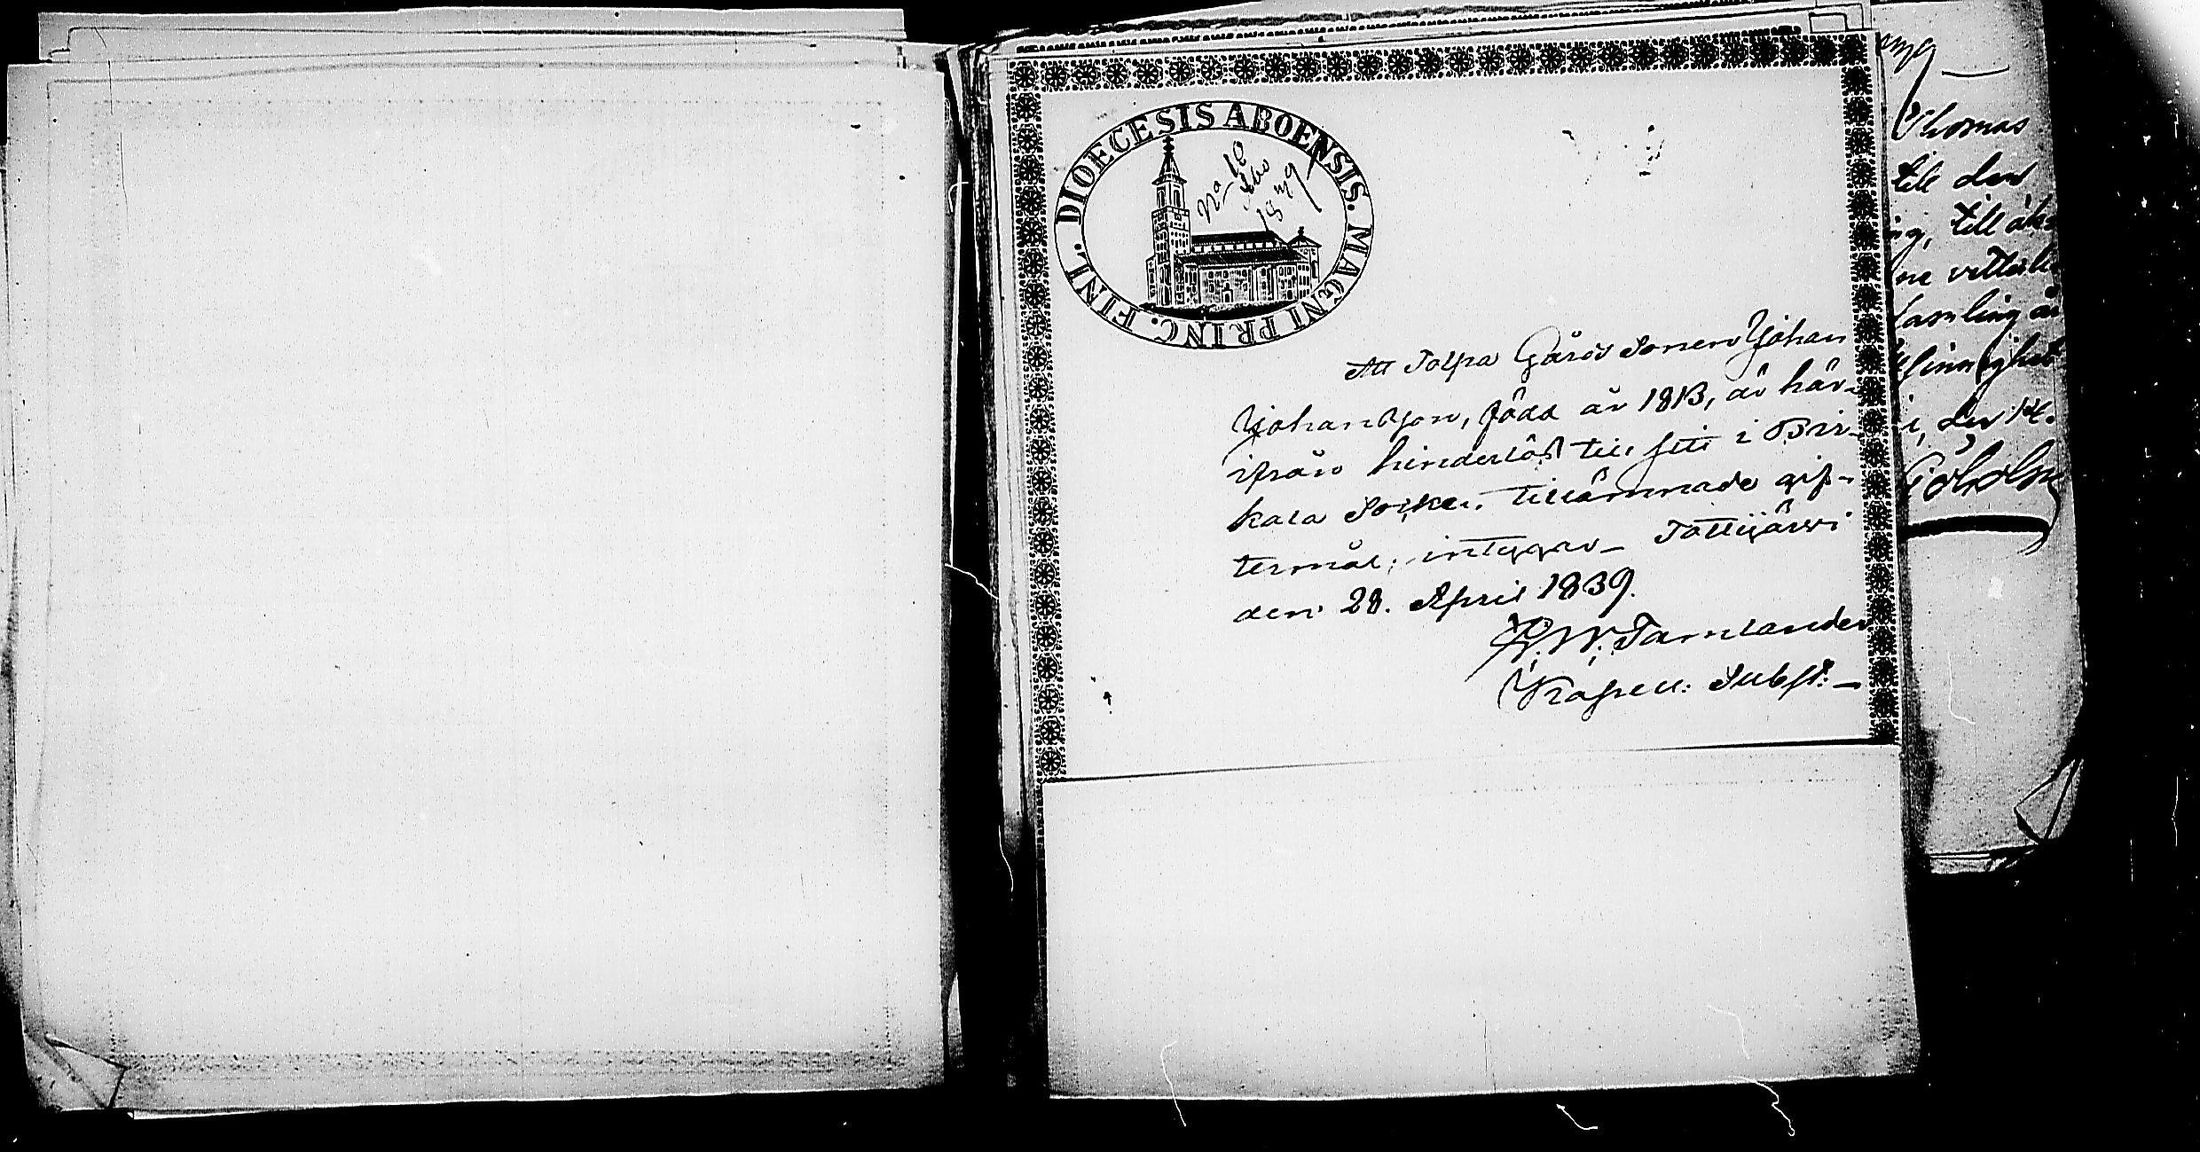 DIOECESIS ABOENSIS. MAGNI PRINC. FINL.
No 10
1839
Att Tolpa Gårds Sonen Johan
Johansson, född år 1813, är här-
ifrån hinderlös till sitt i Bir-
kala Socken tillämnade gif-
termål; intygar_ Tottijärvi
den 28. April 1839.
W. Tamlander
Kapell: Subst:_
Thomas
till den
till
samling är
den 14.